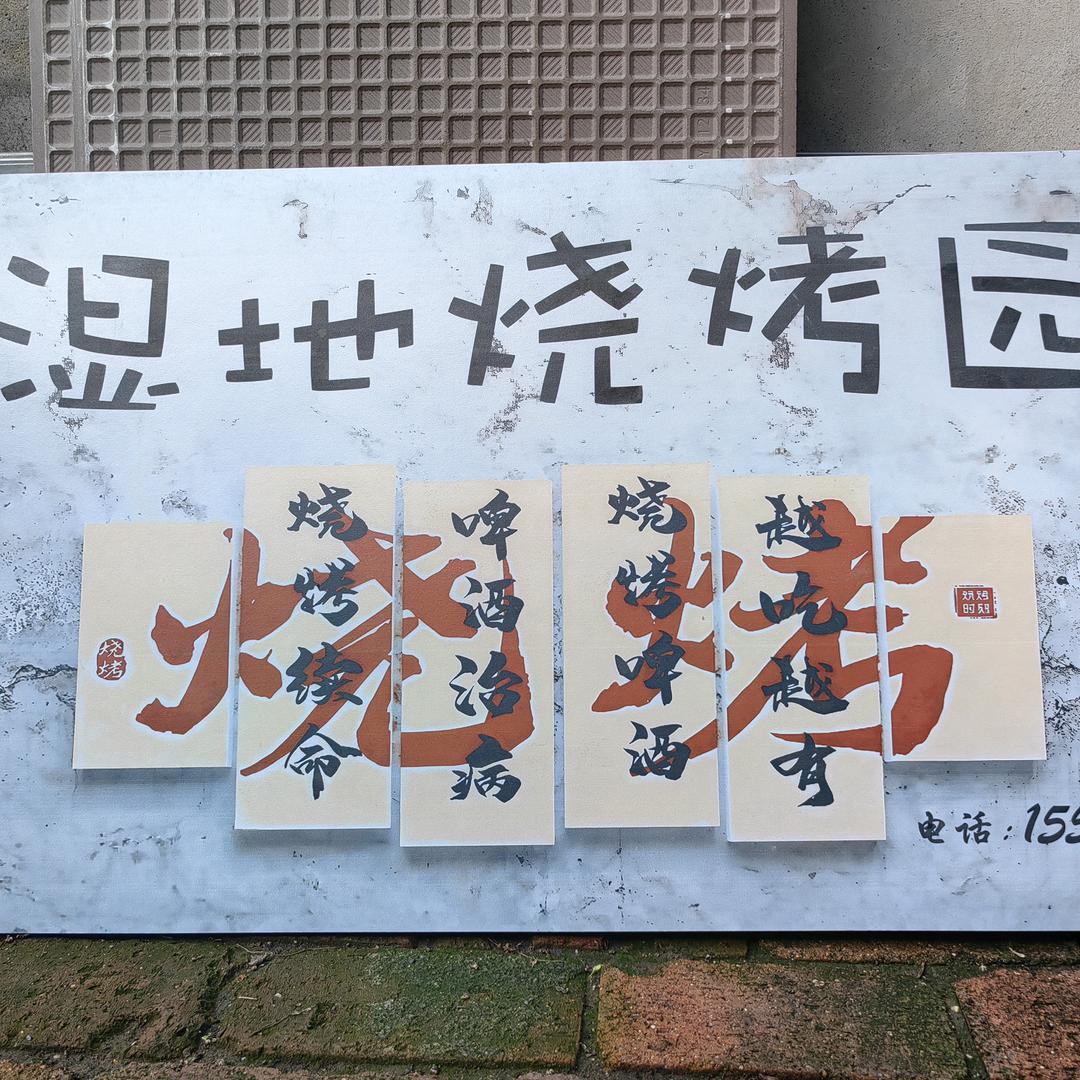 湿地烧烤园
烧烤
烧烤续命
啤酒治病
烧烤啤酒
越吃越有
烧烤
烧烤时刻
电话:159